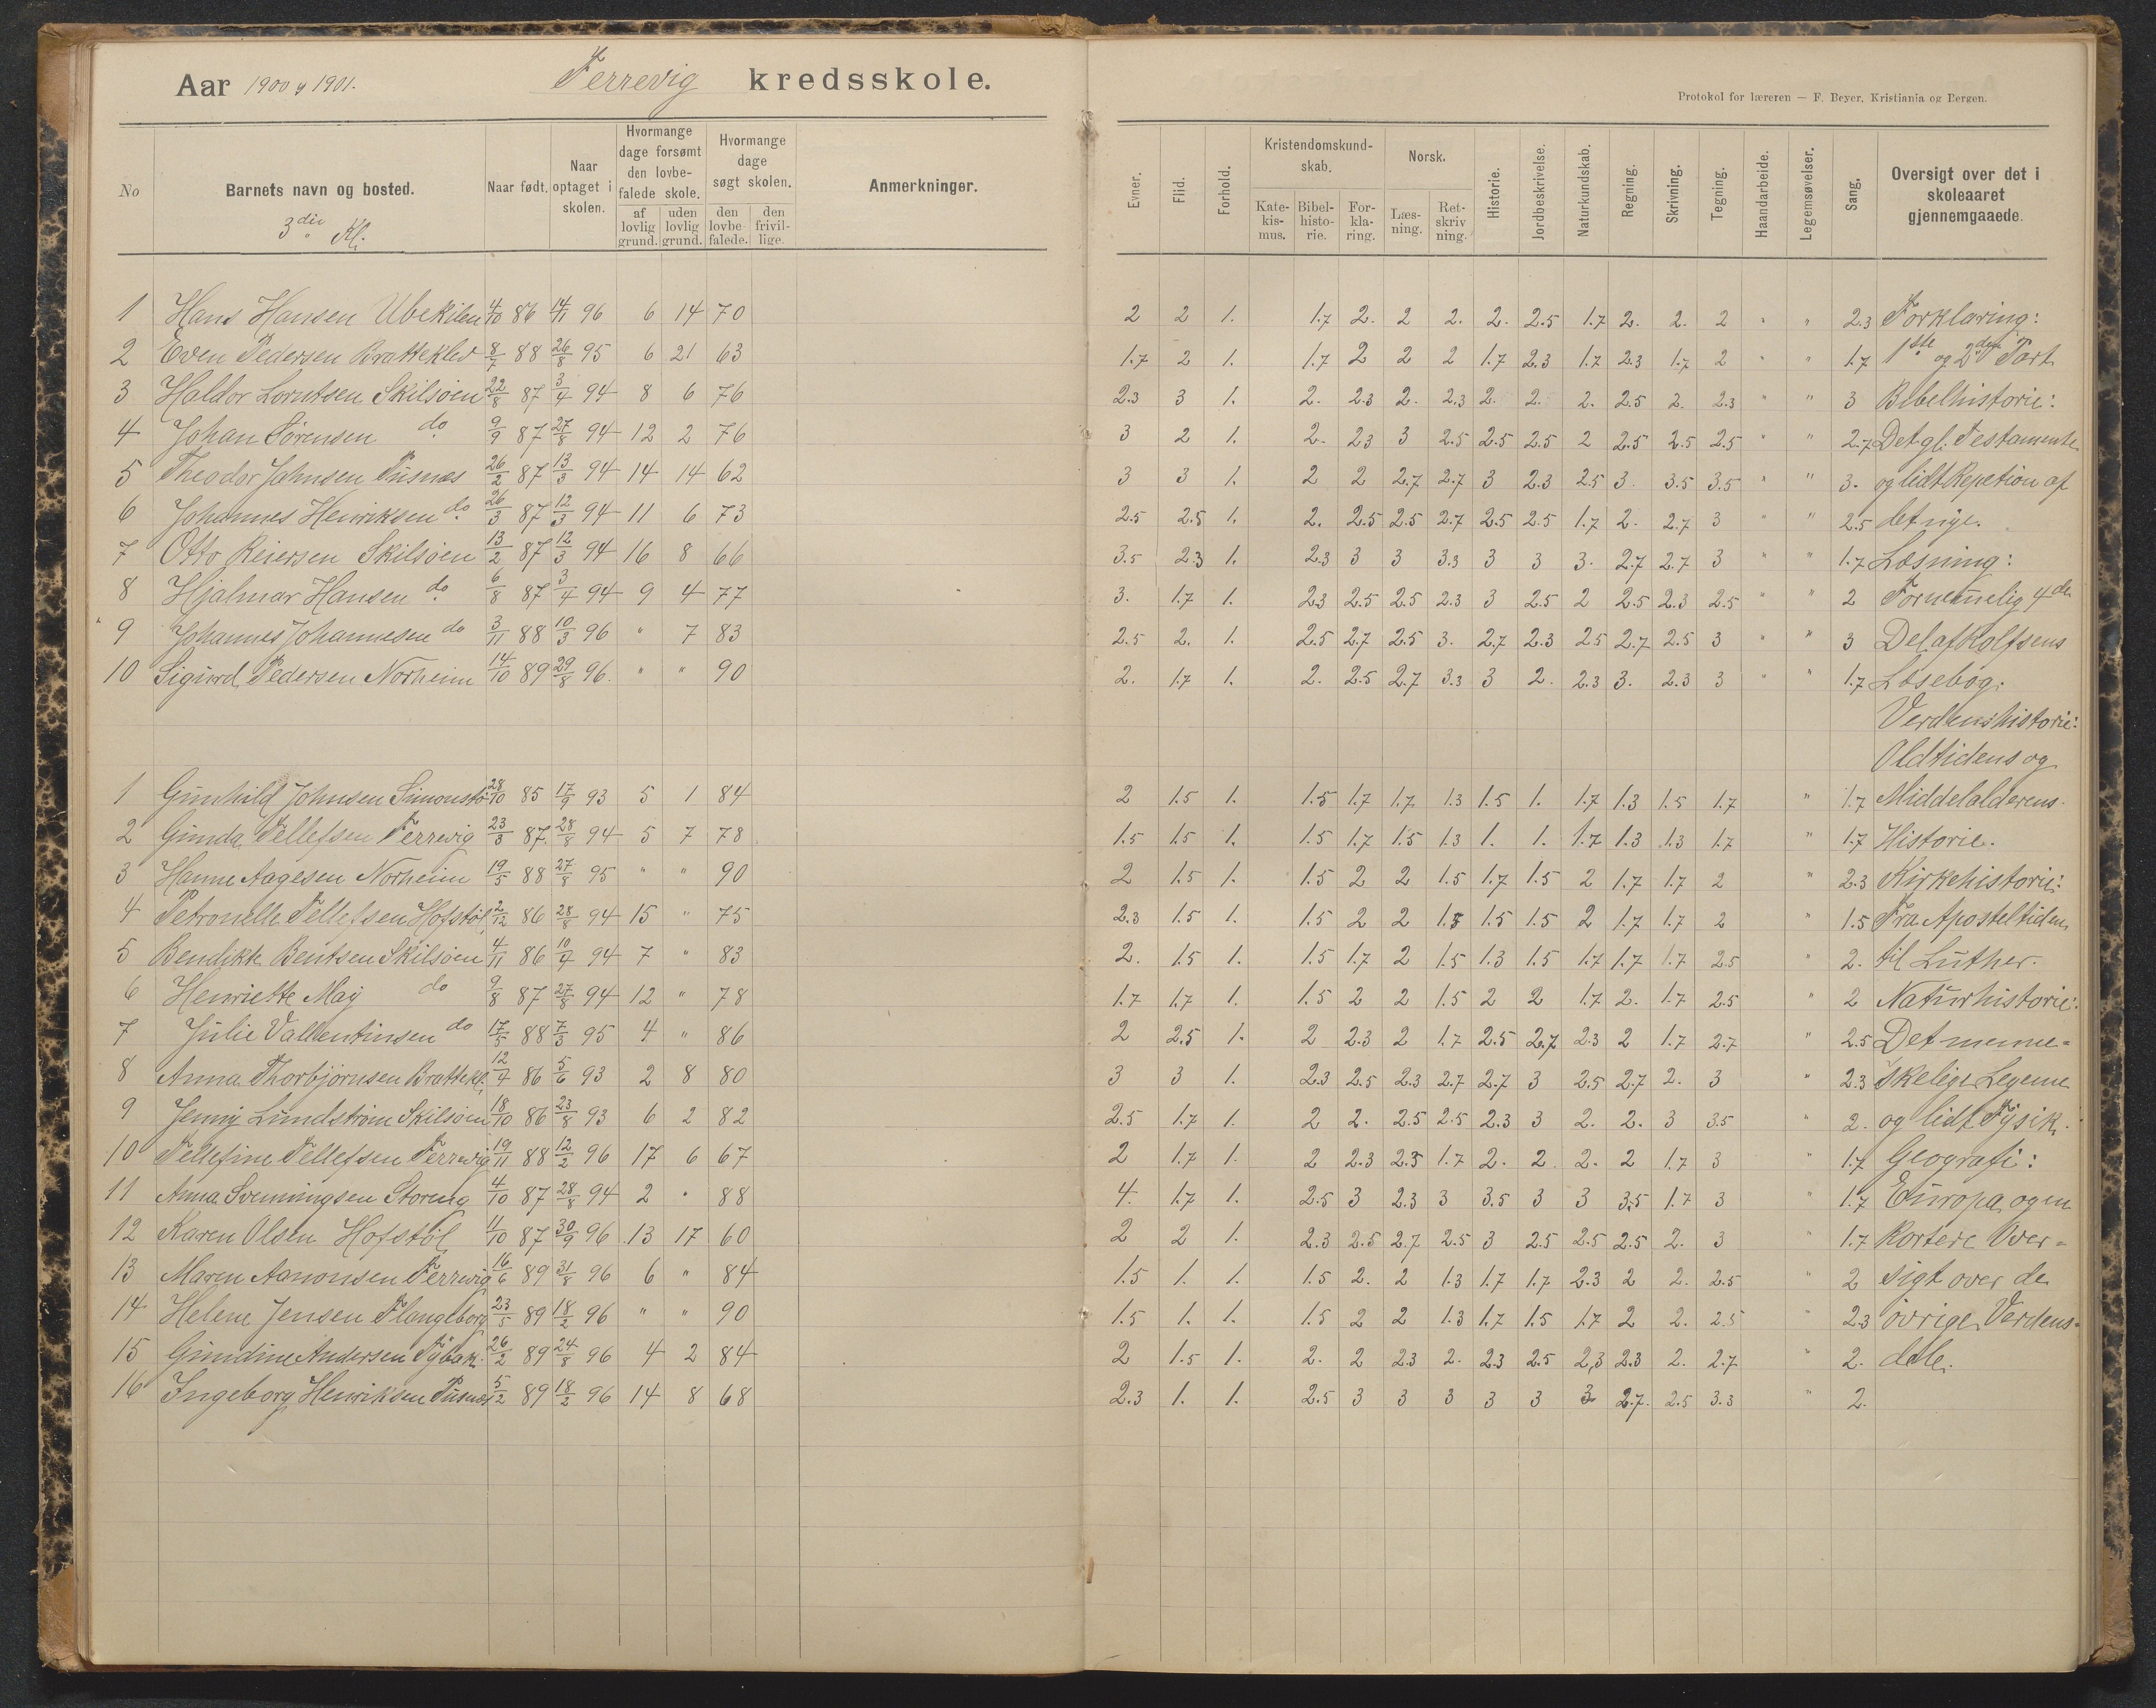 Aar 1900 y 1901. Ferrevig kredsskole.
No
Barnets navn og bosted.
3die Kl.
Naar født.
Naar optaget i skolen.
Hvormange dage forsømt den lovbefalede skole.
af lovlig grund.
uden lovlig grund.
Hvormange dage søgt skolen.
den lovbefalede.
den frivillige.
Anmerkninger.
1 Hans Hansen Ubekilen 4/10 86 14/11 96 6 14 70
2 Even Pedersen Bratteklev 8/7 88 26/8 95 6 21 63
3 Haldor Lorntsen Skilsøen 22/8 87 3/4 94 8 6 76
4 Johan Sørensen do 9/9 87 27/8 94 12 2 76
5 Theodor Johnsen Pusnæs 26/2 87 13/3 94 14 14 62
6 Johannes Henriksen do 26/3 87 12/3 94 11 6 73
7 Otto Reiersen Skilsøen 13/2 87 12/3 94 16 8 66
8 Hjalmar Hansen do 6/8 87 3/4 94 9 4 77
9 Johannes Johannesen do 3/11 88 10/3 96 " 7 83
10 Sigurd Pedersen Norheim 14/10 89 29/8 96. " " 90
1 Gunhild Johnsen Simonstø 28/10 85 17/9 93 5 1 84
2 Gunda Tellefsen Ferrevig 23/3 87. 28/8 94 5 7 78
3 Hanne Aagesen Norheim 19/5 88 27/8 95 " " 90
4 Petronelle Tellefsen Hofstøl 2/12 86 28/8 94 15 " 75
5 Bendikte Bentsen Skilsøen 4/11 86 10/4 94 7 " 83
6 Henriette May do 9/8 87 27/8 94 12 " 78
7 Julie Vallentinsen do 17/5 88 7/3 95 4 " 86
8 Anna Thorbjørnsen Brattekl. 12/4 86 5/6 93 2 8 80
9 Jenny Lundstrøm Skilsøen 18/10 86 23/8 93 6 2 82
10 Tellefine Tellefsen Ferrevig 19/11 88 12/2 96 17 6 67
11 Anna Svenningsen Storeng 4/10 87 28/8 94 2 " 88
12 Karen Olsen Hofstøl 11/10 87 30/9 96 13 17 60
13 Maren Aanonsen Ferrevig 16/6 89 31/8 96 6 " 84
14 Helene Jensen Flangeborg 23/5 89 18/2 96 " " 90
15 Gundine Andersen Tybak. 26/2 89 24/8 96 4 2 84
16 Ingeborg Henriksen Pusnæs 5/2 89 18/2 96 14 8 68
Protokol for læreren — F. Beyer, Kristiania og Bergen.
Evner.
Flid.
Forhold.
Kristendomskundskab.
Katekismus.
Bibelhistorie.
Forklaring.
Norsk.
Læsning.
Retskrivning.
Historie.
Jordbeskrivelse.
Naturkundskab.
Regning.
Skrivning.
Tegning.
Haandarbeide.
Legemsøvelser.
Sang.
Oversigt over det i skoleaaret gjennemgaaede.
2 2 1. 1.7 2. 2 2. 2. 2.5 1.7 2. 2. 2 " " 2.3 Forklaring:
1.7 2 1. 1.7 2 2 2 1.7 2.3 1.7 2.3 1.7 2 " " 1.7 1ste og 2den Part
2.3 3 1. 2. 2.3 2. 2.3 2. 2. 2. 2.5 2. 2.3 " " 3 Bibelhistorie:
3 2 1. 2. 2.3 3 2.5 2.5 2.5 2 2.5 2.5 2.5 " " 2.7 Det gl. Testamente
3 3 1. 2 2 2.7 2.7 3 2.3 2.5 3. 3.5 3.5 " " 3. og lidt Repetion af
2.5 2.5 1. 2. 2.5 2.5 2.7 2.5 2.5 1.7 2. 2.7 3 " " 2.5 det nye.
3.5 2.3 1. 2.3 3 3 3.3 3 3 3. 2.7 2.7 3 " " 1.7 Læsning:
3. 1.7 1. 2.3 2.5 2.5 2.3 3 2.5 2 2.5 2.3 2.5 " " 2 Fornemelig 4de
2.5 2. 1. 2.5 2.7 2.5 3. 2.7 2.3 2.5 2.7 2.5 3 " " 3 Del af Rolfsens
2. 1.7 1. 2. 2.5 2.7 3.3 3 2. 2.3 3. 2.3 3 " " 1.7 Læsebog.
Verdenshistorie:
Oldtidens og
2 1.5 1. 1.5 1.7 1.7 1.3 1.5 1. 1.7 1.3 1.5 1.7 " 1.7 Middelalderens
1.5 1.5 1. 1.5 1.7 1.5 1.3 1. 1. 1.7 1.3 1.3 1.7 " 1.7 Historie.
2 1.5 1. 1.5 2 2 1.5 1.7 1.5 2 1.7 1.7 2 " 2.3 Kirkehistorie:
2.3 1.5 1. 1.5 2 2 1.5 1.5 1.5 2 1.7 1.7 2 " 1.5 Fra Aposteltiden
2. 1.5 1. 1.5 1.7 2 1.5 1.3 1.5 1.7 1.7 1.7 2.5 " 2. til Luther.
1.7 1.7 1. 1.5 2 2 1.5 2 2 1.7 2. 1.7 2.5 " 2 Naturhistorie:
2 2.5 1. 2 2.3 2 1.7 2.5 2.7 2.3 2 1.7 2.7 " 2.5 Det menne=
3 3 1. 2.3 2.5 2.3 2.7 2.7 3 2.5 2.7 2. 3 " 2.3 skelige Legeme
2.5 1.7 1. 2 2. 2.5 2.5 2.3 3 2. 2. 3 3.5 " 2. og lidt Fysik.
2 1.7 1. 2 2.3 2.3 1.7 2. 2. 2. 2 1.7 3 " 1.7 Geografi:
4. 1.7 1. 2.5 3 2.3 3 3.5 3 3 3.5 1.7 3 " 1.7 Europa, og en
2 2 1. 2.3 2.5 2.7 2.5 3 2.5 2.5 2.5 2. 3 " 1.7 kortere Over=
1.5 1. 1. 1.5 2. 2 1.3 1.7 1.7 2.3 2 2. 2.5 " 2 sigt over de
1.5 1. 1. 1.5 2 2 1.3 1.7 1.5 1.7 2 2. 2.5 " 2.3 øvrige Verdens=
2 1.5 1. 2. 2 2.3 2. 2.3 2.5 2,3 2.3 2. 2.7 " 2. dele.
2.3 1. 1. 2.5 3 3 3 3 3 3 2.7. 2.5 3.3 " 2.